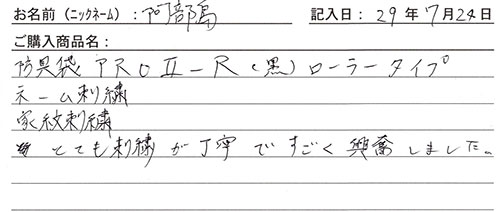 お名前（ニックネーム）：阿部烏 記入日：29年7月24日
ご購入商品名：
防具袋 PROⅡ－R（黒）ローラータイプ
ネーム刺繍
家紋刺繍
とても刺繍が丁寧ですごく興奮しました。